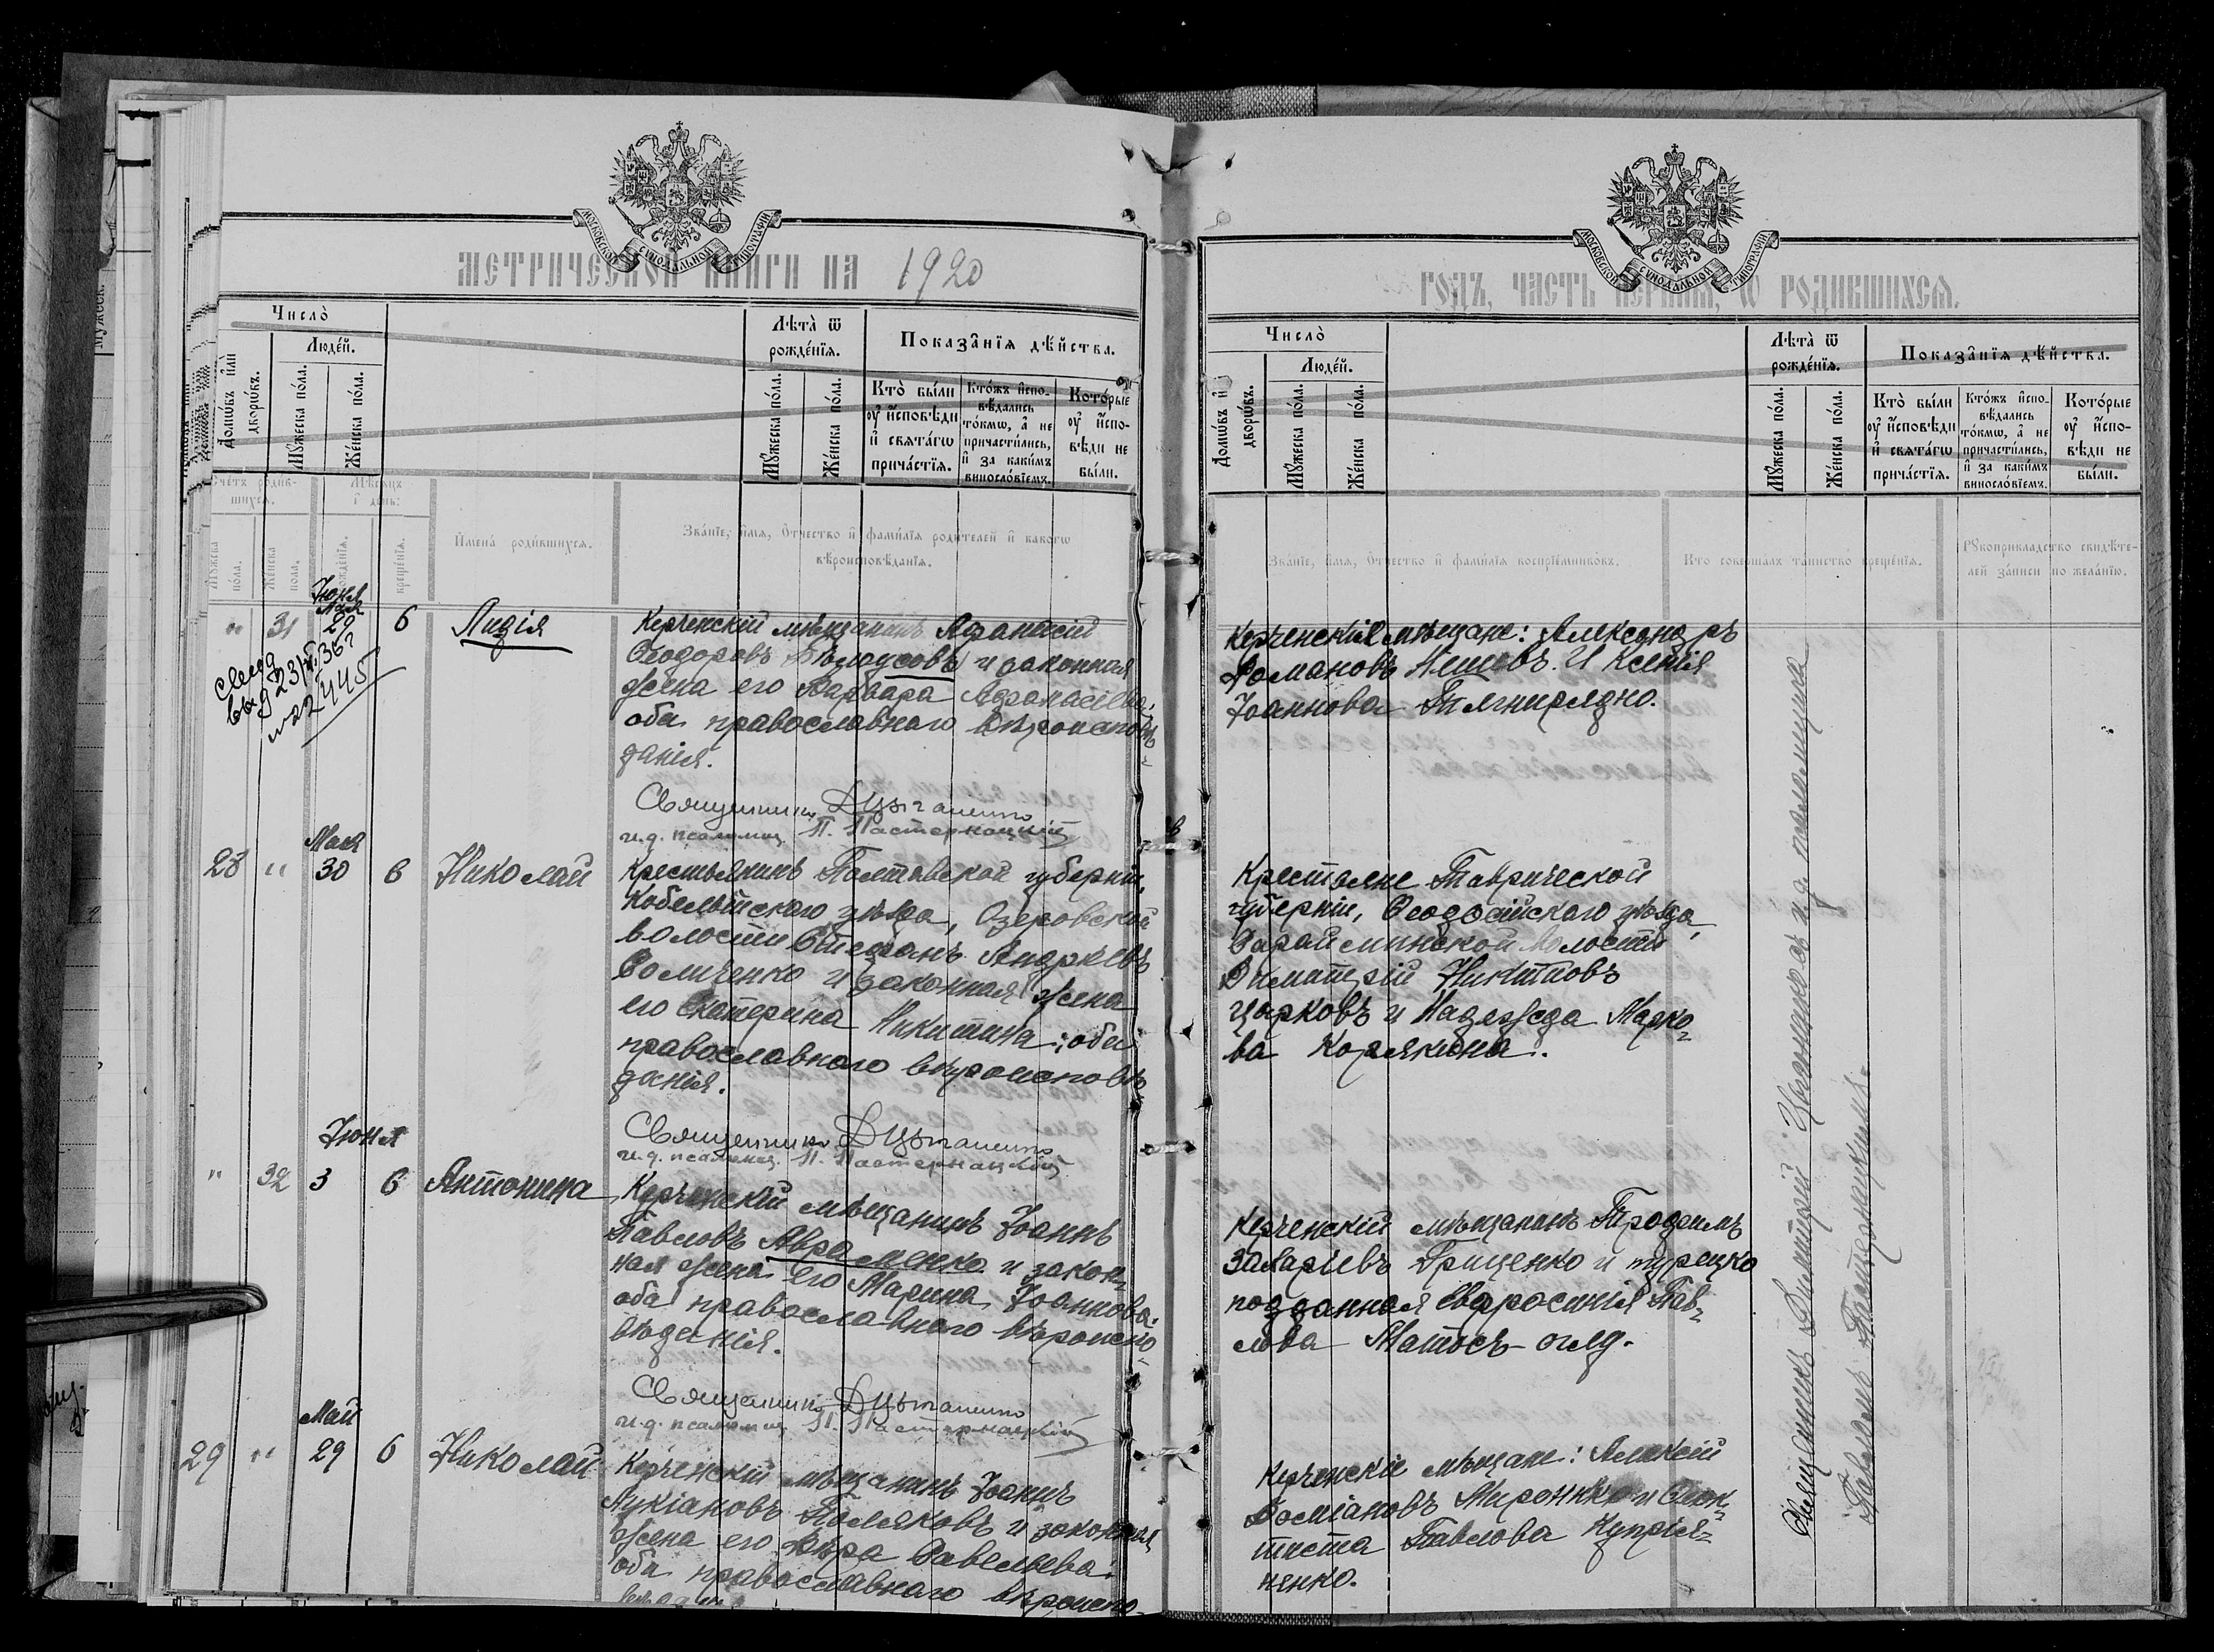 МЕТРИЧЕСКОЙ КНИГИ НА 1920
МОСКОВСКОЙ СѴНОДАЛЬНОЙ ТИПОГРАФІИ
Число̀
Людéй.
Домѡ́въ и҆лѝ дворѡ́въ.
Мꙋ́жеска по́ла.
Же́нска по́ла.
Лѣ́та ѿ рожде́нїѧ.
Мꙋ́жеска по́ла.
Же́нска по́ла.
Показа̑нїѧ дѣ́йства.
Кто̀ бы́ли
оу҆ и҆́сповѣди
и҆ свѧта́гѡ
прича́стїѧ.
Кто́жъ и҆спо-
вѣ́дались
то́кмѡ, а҆ не
причасти́лись,
и҆ за каки́мъ
винослѡ́вїемъ.
Кото́рые
оу҆ и҆́спо-
вѣди не
бы́ли.
Счетъ родив-
шихсѧ.
Мꙋжеска пола.
Женска пола.
Мѣсѧцъ и день:
рожденїѧ.
крещенїѧ.
Имена родившихсѧ.
Званїе, имѧ, отчество и фамилїѧ родителей и какогѡ
вѣроисповѣданїѧ.
Іюня
Мая
" 31 29 6 Лидія
Керченскій мѣщанинъ Афанасій
Ѳеодоровъ Бѣлоусовъ и законная
жена его Варвара Афанасіева:
оба православнаго вѣроисповѣ-
данія.
выд 23/ 36 г
№ 22445
Священникъ Д Цыганенко
и.д. псаломщ. П. Пастернацкій
Мая
28 " 30 6 Николай
Крестьянинъ Полтавской губерніи,
Кобелякскаго уѣзда, Озеровской
волости Стефанъ Андреевъ
и законная жена
его Екатерина Никитина: оба
православнаго вѣроисповѣ
данія.
Священникъ Д Цыганенко
и.д. псаломщ. П. Пастернацкій
Іюня
" 32 3 6 Антонина
Керченскій мѣщанинъ Іоаннъ
Павловъ Авраменко и закон-
ная жена его Марина Іоаннова:
оба православнаго вѣроиспо-
вѣданія.
Священникъ Д Цыганенко
и.д. псаломщ. П. Пастернацкій
Май
29 " 29 6 Николай
Керченскій мѣщанинъ Іоаннъ
Лукіановъ Поляковъ и законная
жена его Вѣра Савельева:
оба православнаго вѣроиспо-
вѣданія
ГОДЪ, ЧАСТЬ ПЕРВАЯ, Ѡ РОДИВШИХСЯ.
МОСКОВСКОЙ СѴНОДАЛЬНОЙ ТИПОГРАФІИ
Число̀
Людéй.
Домѡ́въ и҆лѝ дворѡ́въ.
Мꙋ́жеска по́ла.
Же́нска по́ла.
Лѣ́та ѿ рожде́нїѧ.
Мꙋ́жеска по́ла.
Же́нска по́ла.
Показа̑нїѧ дѣ́йства.
Кто̀ бы́ли
оу҆ и҆́сповѣди
и҆ свѧта́гѡ
прича́стїѧ.
Кто́жъ и҆спо-
вѣ́дались
то́кмѡ, а҆ не
причасти́лись,
и҆ за каки́мъ
винослѡ́вїемъ.
Кото́рые
оу҆ и҆́спо-
вѣди не
бы́ли.
Званїе, имѧ, отчество и фамилїѧ воспрїемникѡвъ.
Кто совершалъ таинство крещенїѧ.
Рꙋкоприкладство свидѣте-
лей записи по желанїю.
Керченскіе мѣщане: Александръ
Романовъ и Ксенія
Іоаннова
Крестьяне Таврической
губерніи, Ѳеодосійскаго уѣзда,
Сарайминской волости
Димитрій Никитовъ
Царковъ и Надежда Марко-
ва Корякина.
Керченскій мѣщанинъ Трофимъ
Захаріевъ Грищенко и турецко
подданная Евфросинія Пав-
лова Матосъ-оглу.
Керченскіе мѣщане: Алексій
Косміановъ Миронкко и Ѳеок-
тиста Павлова Купріе-
ненко.
Священникъ Димитрій Цыганенко и и.д. псаломщика
Павелъ Пастернацкій.